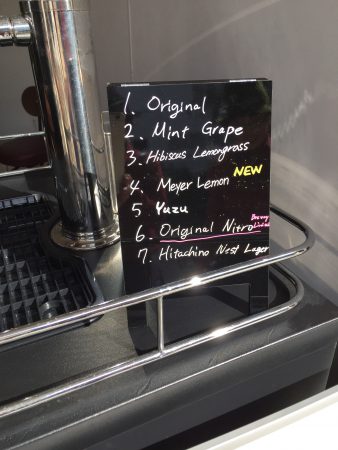 1. Original
2. Mint Grape
3. Hibiscus Lemongrass
NEW
4. Meyer Lemon
5 Yuzu
6. Original Nitro
7. Hitachino Nest Lager